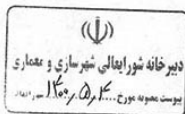 دبیرخانه شورایعالی شهرسازی و معماری
پیوست مصوبه مورخ ۱۴۰۰٫۵٫۴